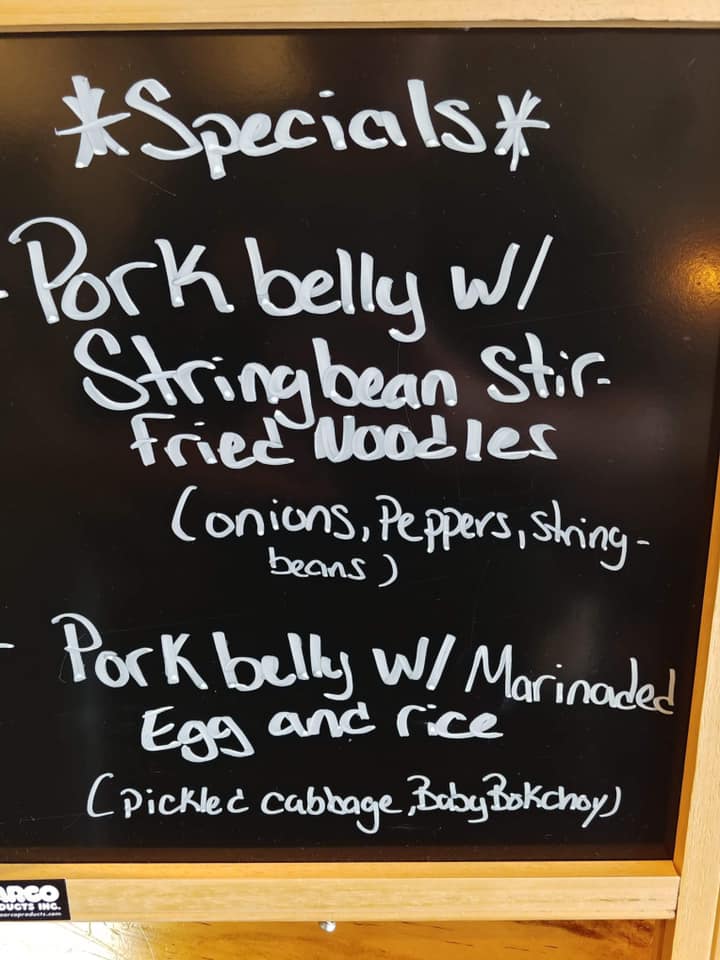 *Specials*
- Pork belly w/
Stringbean Stir-
fried Noodles
(onions, Peppers, string-
beans)
- Pork belly w/ Marinaded
Egg and rice
(Pickled cabbage, Baby Bokchoy)
ARGO
DUCTS INC.